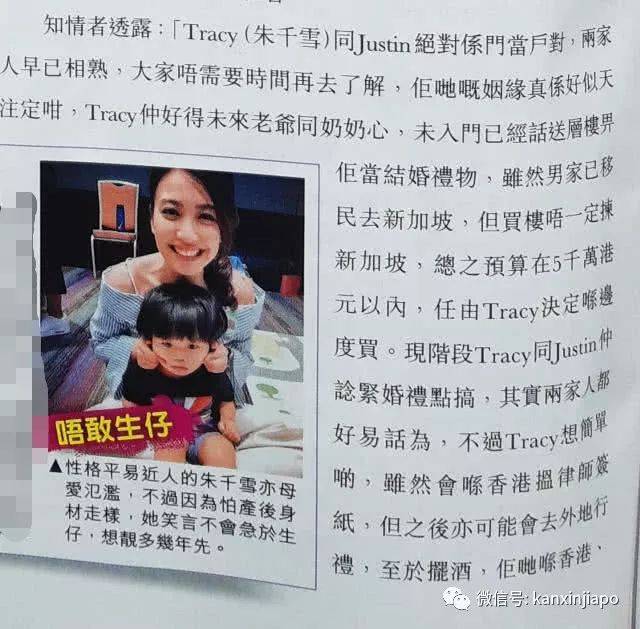 知情者透露：「Tracy（朱千雪）同Justin絕對係門當戶對，兩家
人早已相熟，大家唔需要時間再去了解，佢哋嘅姻緣真係好似天
注定咁，Tracy仲好得未來老爺同奶奶心，未入門已經話送層樓畀
佢當結婚禮物，雖然男家已移
民去新加坡，但買樓唔一定揀
新加坡，總之預算在5千萬港
元以內，任由Tracy決定喺邊
度買。現階段Tracy同Justin仲
諗緊婚禮點搞，其實兩家人都
好易話為，不過Tracy想簡單
啲，雖然會喺香港搵律師簽
紙，但之後亦可能會去外地行
禮，至於擺酒，佢哋喺香港、
唔敢生仔
▲性格平易近人的朱千雪亦母
愛氾濫，不過因為怕產後身
材走樣，她笑言不會急於生
仔，想靚多幾年先。
微信号: kanxinjiapo